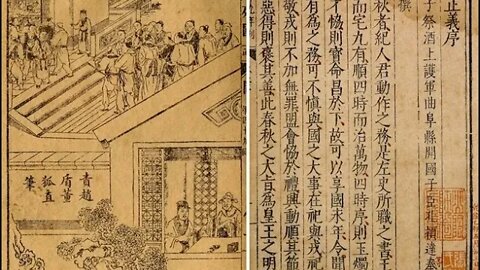 正義序
子祭酒上護軍曲阜縣開國子臣孔穎達奉
撰
秋者紀人君動作之務是左史所職之書王
而宅九有順四時而治萬物四時序則玉燭
協則寶命昌於下故可以享國永年令聞
有為之務可不慎與國之大事在祀與戎祀
敬戎則不加無罪盟會協於禮興動順其節
惡得則褒其善此春秋之大旨為皇王之明
趙
盾董
狐直
筆